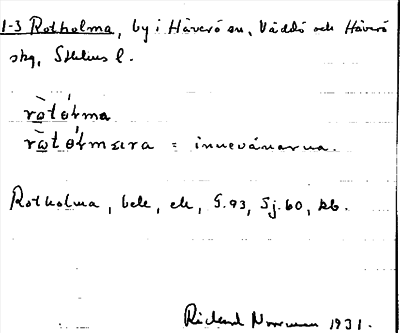 1-3 Rotholma, by i Häverö sn, Väddö och Häverö
skg, Sthlms l.
ròtólma
= innevånarna.
Rotholma, beb, ek, G.93, Sj.60, kb.
Rickard Norrman 1931.